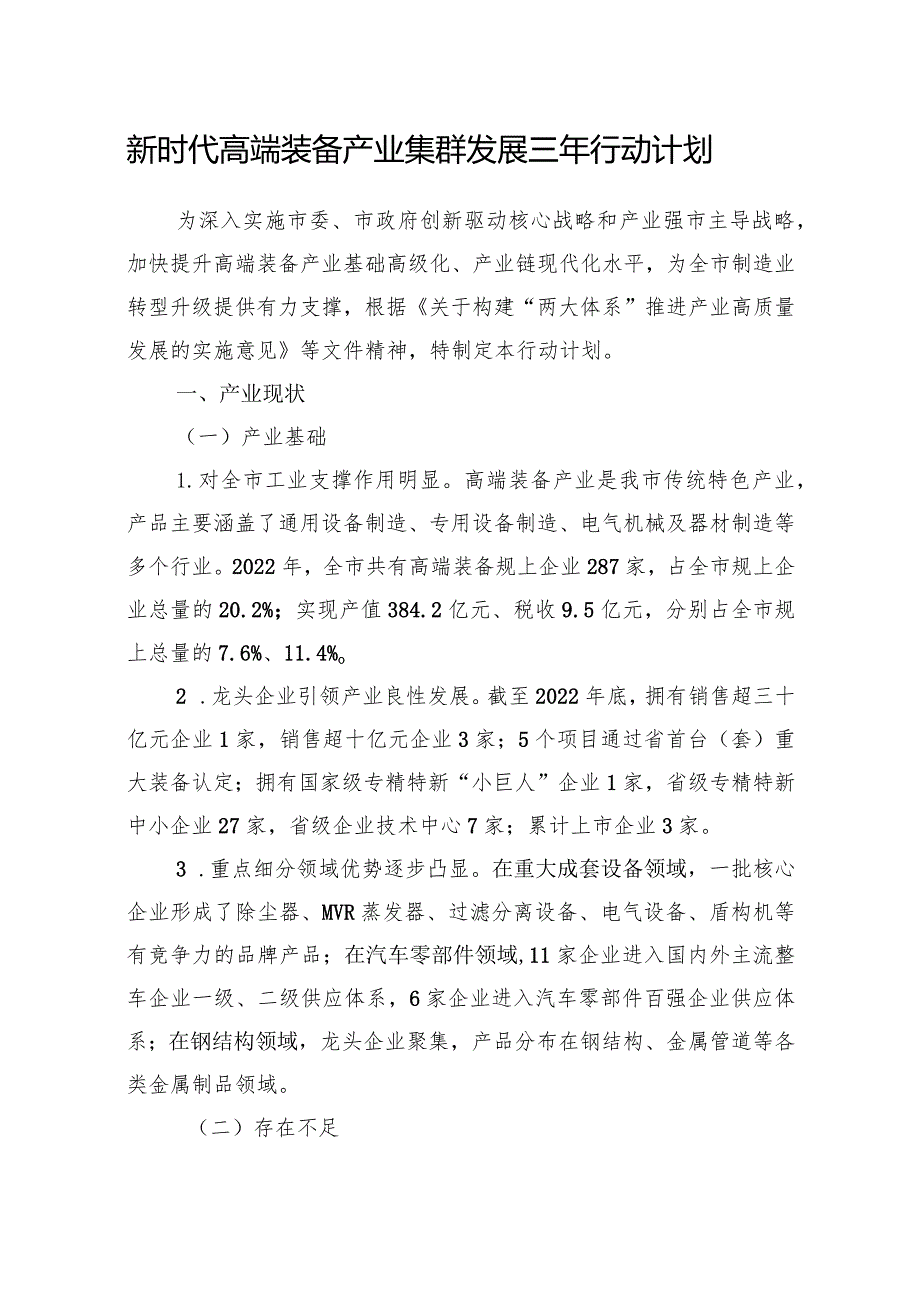 新时代高端装备产业集群发展三年行动计划
为深入实施市委、市政府创新驱动核心战略和产业强市主导战略,
加快提升高端装备产业基础高级化、产业链现代化水平，为全市制造业
转型升级提供有力支撑，根据《关于构建“两大体系”推进产业高质量
发展的实施意见》等文件精神，特制定本行动计划。
一、产业现状
（一）产业基础
1.对全市工业支撑作用明显。高端装备产业是我市传统特色产业,
产品主要涵盖了通用设备制造、专用设备制造、电气机械及器材制造等
多个行业。2022年，全市共有高端装备规上企业287家，占全市规上企
业总量的20.2%;实现产值384.2亿元、税收9.5亿元，分别占全市规
上总量的7.6%、11.4%。
2 .龙头企业引领产业良性发展。截至2022年底，拥有销售超三十
亿元企业1家，销售超十亿元企业3家；5个项目通过省首台（套）重
大装备认定；拥有国家级专精特新“小巨人”企业1家，省级专精特新
中小企业27家，省级企业技术中心7家；累计上市企业3家。
3 .重点细分领域优势逐步凸显。在重大成套设备领域，一批核心
企业形成了除尘器、MVR蒸发器、过滤分离设备、电气设备、盾构机等
有竞争力的品牌产品；在汽车零部件领域,11家企业进入国内外主流整
车企业一级、二级供应体系，6家企业进入汽车零部件百强企业供应体
系；在钢结构领域，龙头企业聚集，产品分布在钢结构、金属管道等各
类金属制品领域。
（二）存在不足